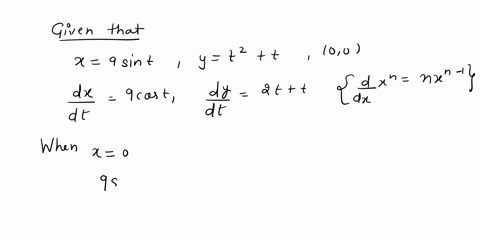 Given that
x = 9 sin t , y = t² + t , (0,0)
dx/dt = 9 cos t, dy/dt = 2t + t {d/dx xⁿ = nxⁿ⁻¹}
When x = 0
9s